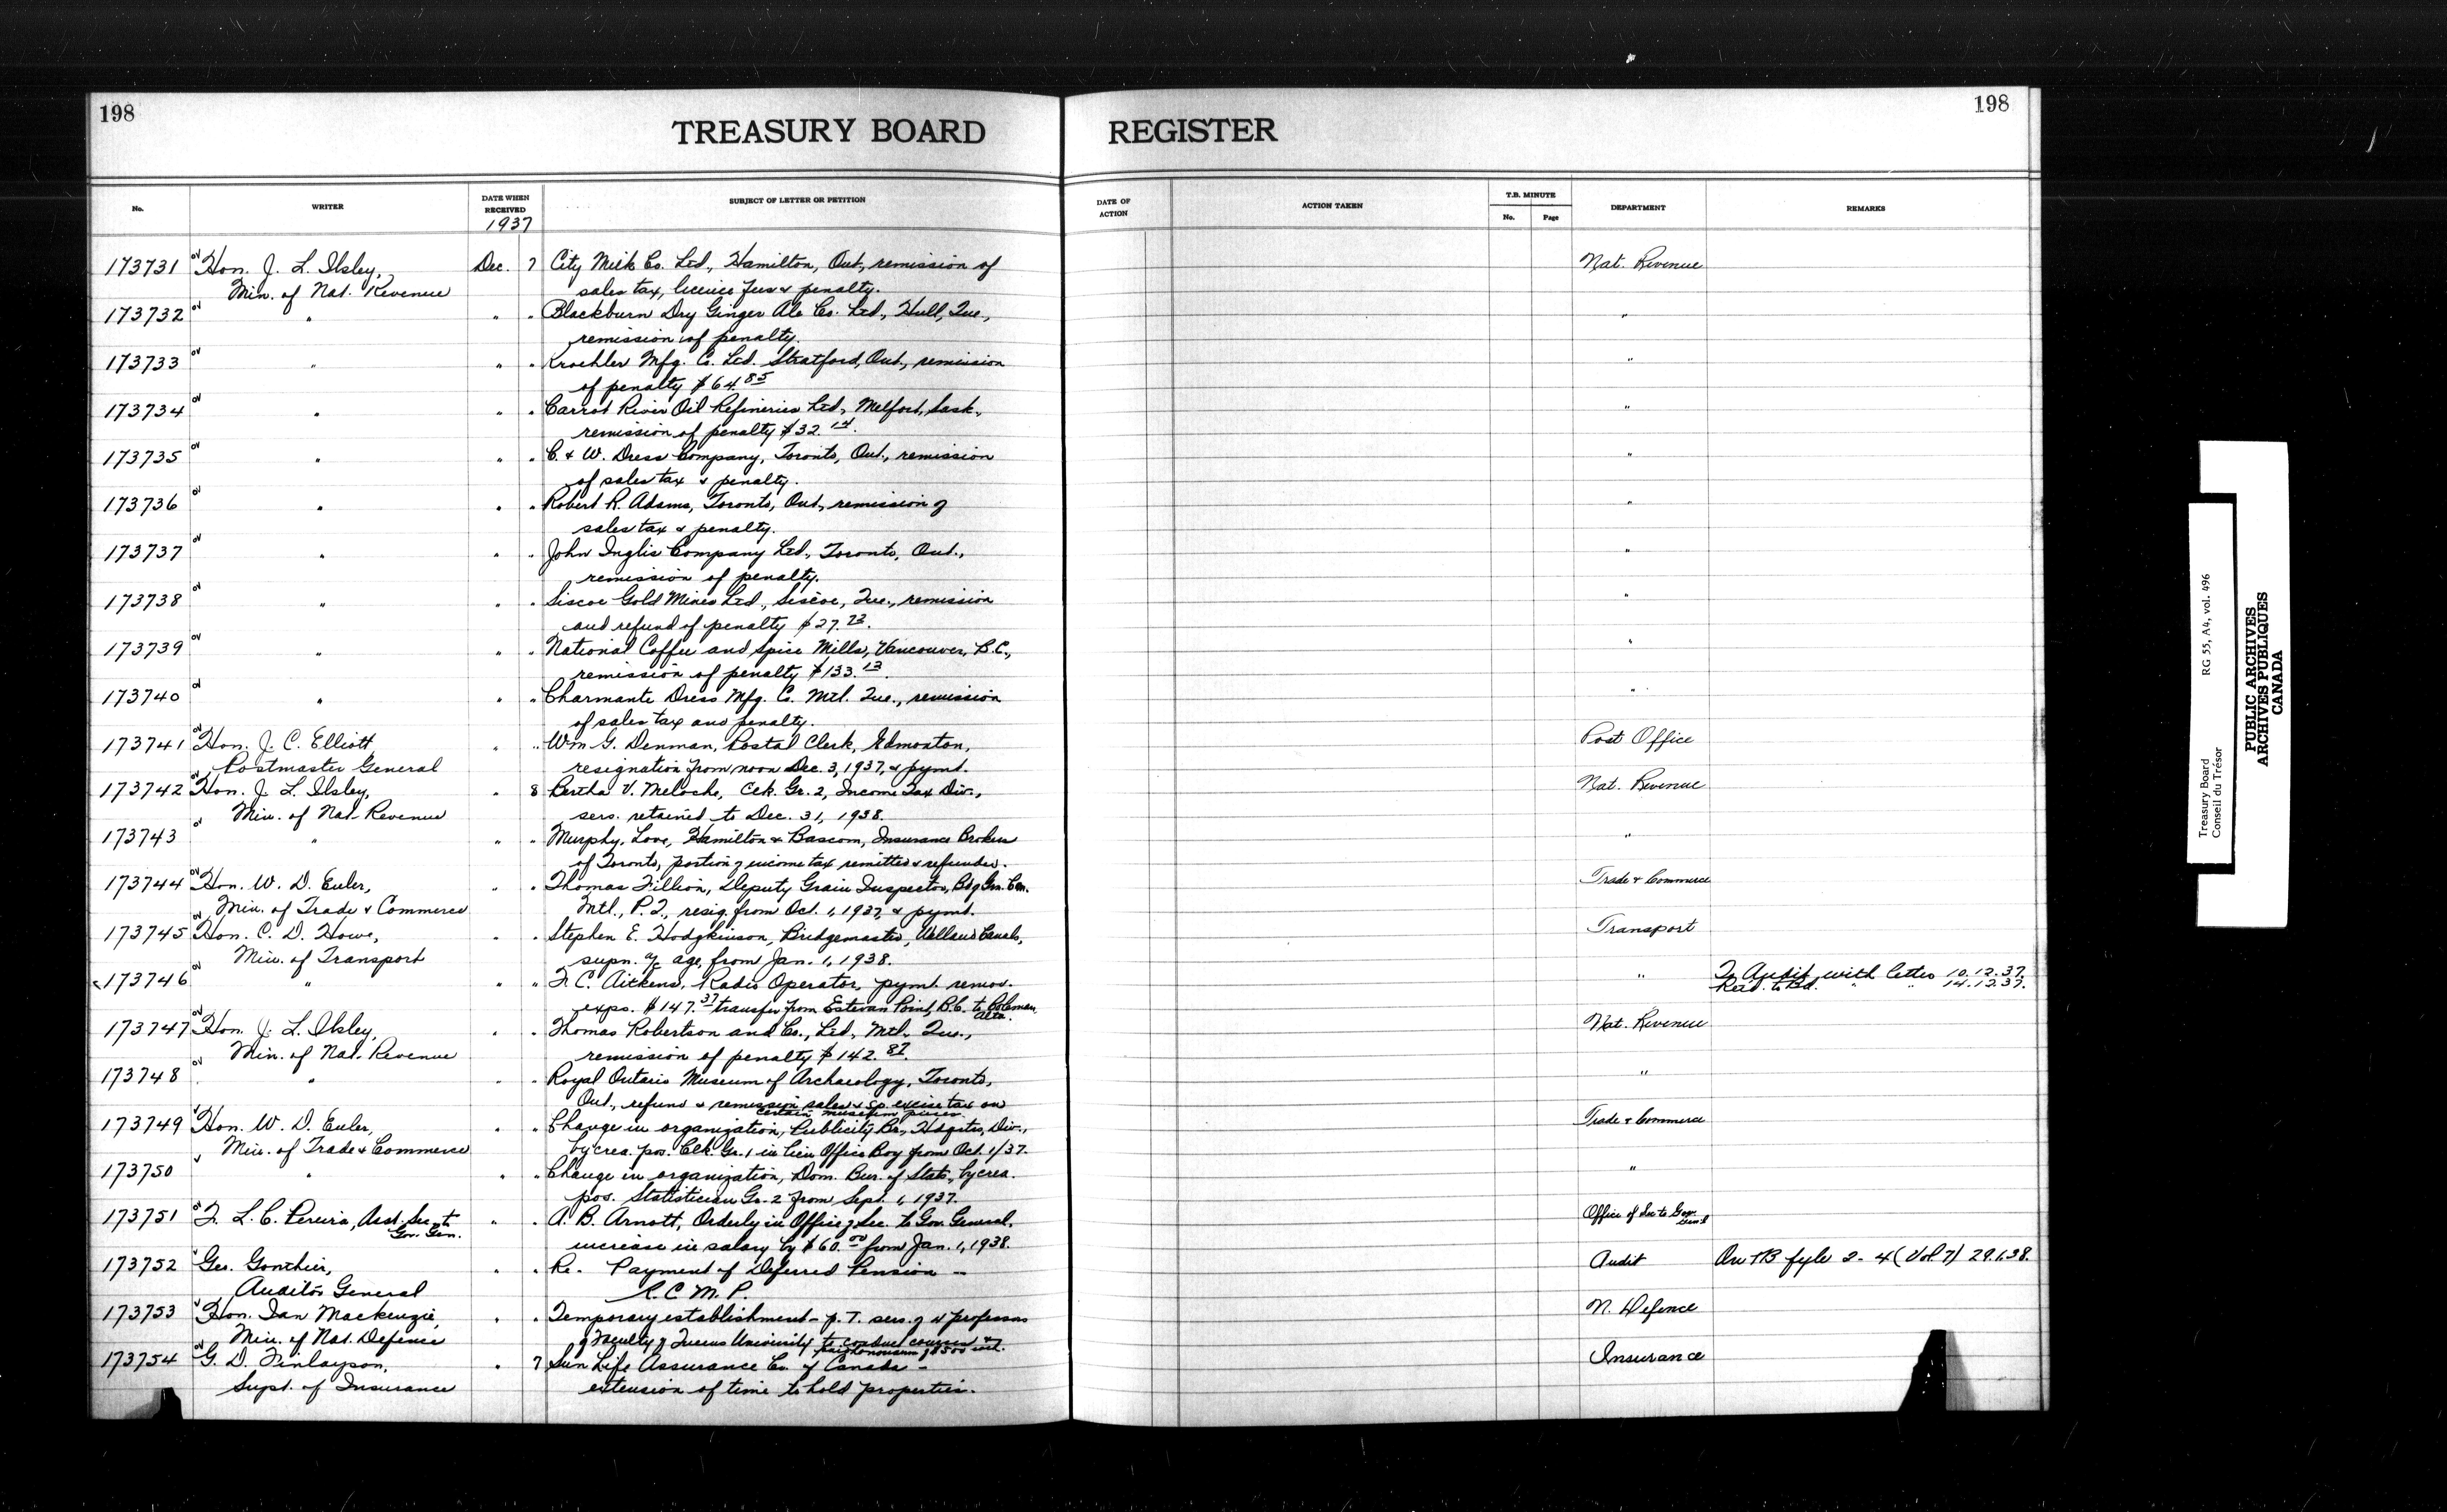 198
198
TREASURY BOARD REGISTER
No. WRITER DATE WHEN RECEIVED SUBJECT OF LETTER OR PETITION DATE OF ACTION ACTION TAKEN T.B. MINUTE No. Page DEPARTMENT REMARKS
1937
173731 Hon. J. L. Ilsley, Dec. 7 City Milk Co. Ltd., Hamilton, Ont., remission of Nat. Revenue
Min. of Nat. Revenue sales tax, licence fees & penalty.
173732 " " " Blackburn Dry Ginger Ale Co. Ltd., Hull, Que., "
remission of penalty.
173733 " " " Kroehler Mfg. Co. Ltd. Stratford, Ont., remission "
of penalty $64.85
173734 " " " Carrot River Oil Refineries Ltd., Melfort, Sask., "
remission of penalty $32.14.
173735 " " " C. & W. Dress Company, Toronto, Ont., remission "
of sales tax & penalty.
173736 " " " Robert R. Adams, Toronto, Ont., remission of "
sales tax & penalty.
173737 " " " John Inglis Company Ltd., Toronto, Ont., "
remission of penalty.
173738 " " " Siscoe Gold Mines Ltd., Siscoe, Que., remission "
and refund of penalty $27.73.
173739 " " " National Coffee and Spice Mills, Vancouver, B.C., "
remission of penalty $133.13.
173740 " " " Charmante Dress Mfg. Co. Mtl. Que., remission "
of sales tax and penalty.
173741 Hon. J. C. Elliott " " Wm G. Denman, Postal Clerk, Edmonton, Post Office
Postmaster General resignation from noon Dec. 3, 1937, & pymt.
173742 Hon. J. L. Ilsley, " 8 Bertha V. Meloche, Clk. Gr. 2, Income Tax Div., Nat. Revenue
Min. of Nat. Revenue sers. retained to Dec. 31, 1938.
173743 " " " Murphy, Love, Hamilton & Bascom, Insurance Brokers "
of Toronto, portion of income tax remitted & refunded.
173744 Hon. W. D. Euler, " " Thomas Fillion, Deputy Grain Inspector, Bd of Grn. Com. Trade & Commerce
Min. of Trade & Commerce Mtl., P.Q., resig. from Oct. 1, 1937, & pymt.
173745 Hon. C. D. Howe, " " Stephen E. Hodgkinson, Bridgemaster, Welland Canals, Transport
Min. of Transport supn. a/c age, from Jan. 1, 1938.
173746 " " " F. C. Aitkens, Radio Operator, pymt. remov. " To Audit with letter 10.12.37.
exps. $147.37 transfer from Estevan Point, B.C. to Coleman, Alta. Retd. to Bd. " " 14.12.37.
173747 Hon. J. L. Ilsley, " " Thomas Robertson and Co., Ltd., Mtl., Que., Nat. Revenue
Min. of Nat. Revenue remission of penalty $142.87.
173748 " " " Royal Ontario Museum of Archaeology, Toronto, "
Ont., refund & remission sales & sp. excise tax on
certain museum pieces.
173749 Hon. W. D. Euler, " " Change in organization, Publicity Br., Hdqtrs. Div., Trade & Commerce
Min. of Trade & Commerce by crea. pos. Clk. Gr. 1 in lieu Office Boy from Oct. 1/37.
173750 " " " Change in organization, Dom. Bur. of Stats., by crea. "
pos. Statistician Gr. 2 from Sept. 1, 1937.
173751 F. L. C. Pereira, Asst. Sec. to " " A. B. Arnott, Orderly in Office of Sec. to Gov. General, Office of Sec to Gov. Gen'l
Gov. Gen. increase in salary by $60.00 from Jan. 1, 1938.
173752 Geo. Gonthier, " " Re - Payment of Deferred Pension - Audit On TB fyle 2-4 (Vol. 7) 29.1.38.
Auditor General R.C.M.P.
173753 Hon. Ian Mackenzie, " " Temporary establishment - p.T. sers. of 4 professors N. Defence
Min. of Nat. Defence of Faculty of Queens University to conduct courses &
honorarium of $500
173754 G. D. Finlayson, " 7 Sun Life Assurance Co. of Canada - Insurance
Supt. of Insurance extension of time to hold properties.
Treasury Board RG 55, A4, vol. 496
Conseil du Trésor
PUBLIC ARCHIVES
ARCHIVES PUBLIQUES
CANADA